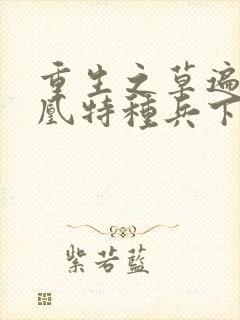 重生之草遍
凰特種兵下
紫若藍